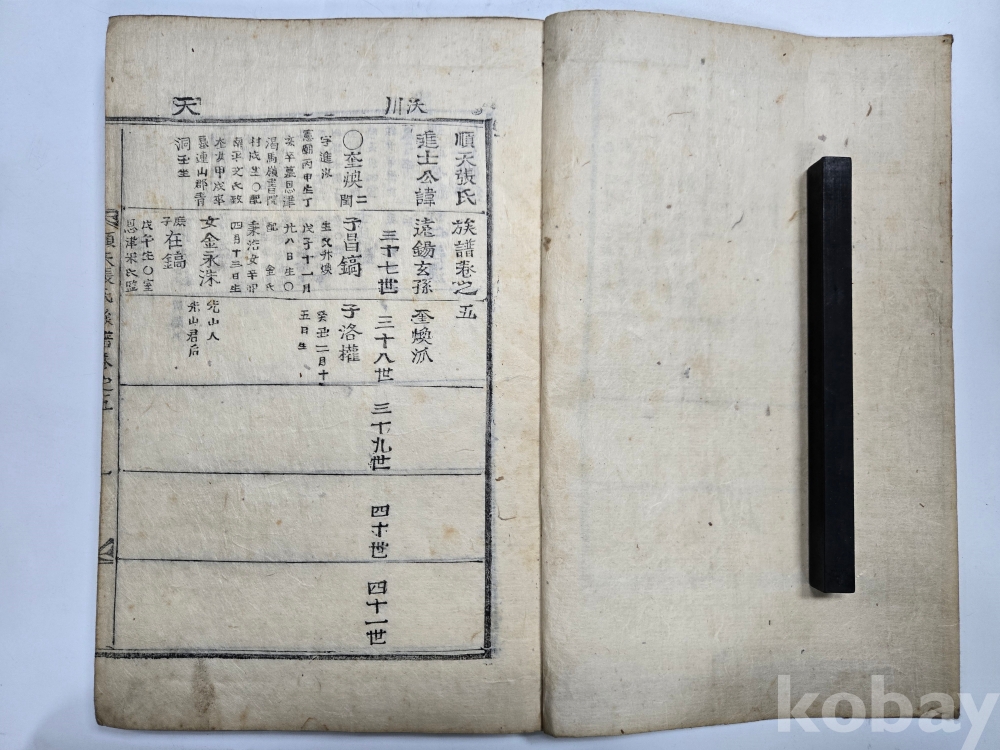 沃川
天
順天張氏族譜卷之五
進士公諱遠錫玄孫奎煥派
三十七世
三十八世
三十九世
四十世
四十一世
○奎煥
字進汝
憲廟丙申生丁
亥卒墓恩津
渴馬嶺書院
村戌坐○配
南平文氏致
墓連山郡青
洞壬坐
子昌鎬
生父升煥
戊子十一月
九八日生○
配金氏
秉浩女辛卯
四月十三日生
女金永洙
庶子在鎬
戊午生○室
恩津宋氏
子洛權
癸丑二月十
五日生
光山人
光山君后
順天張氏族譜卷之五
一
kobay